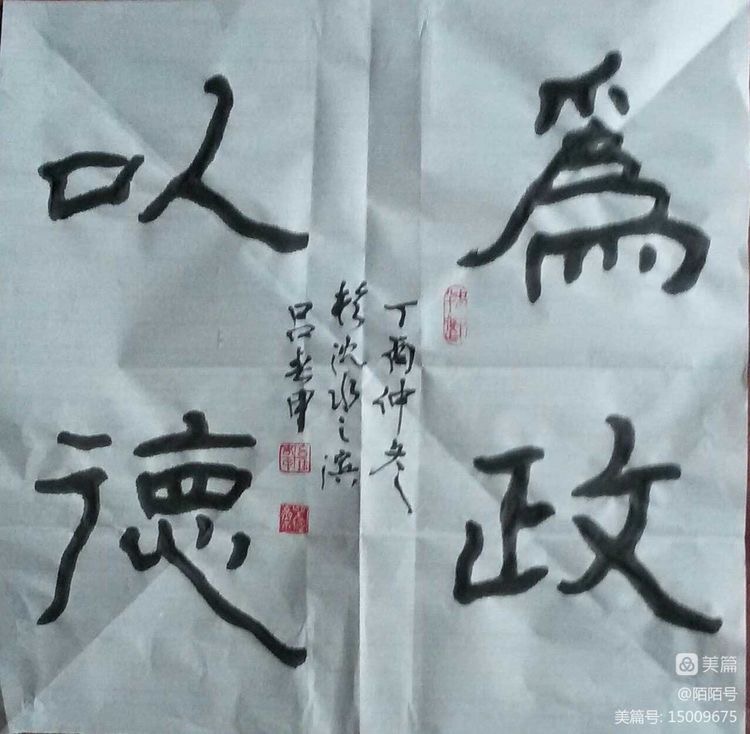 為政
以德
丁酉仲冬
於沈水之濱
呂春申
美篇
@陌陌号
美篇号: 15009675